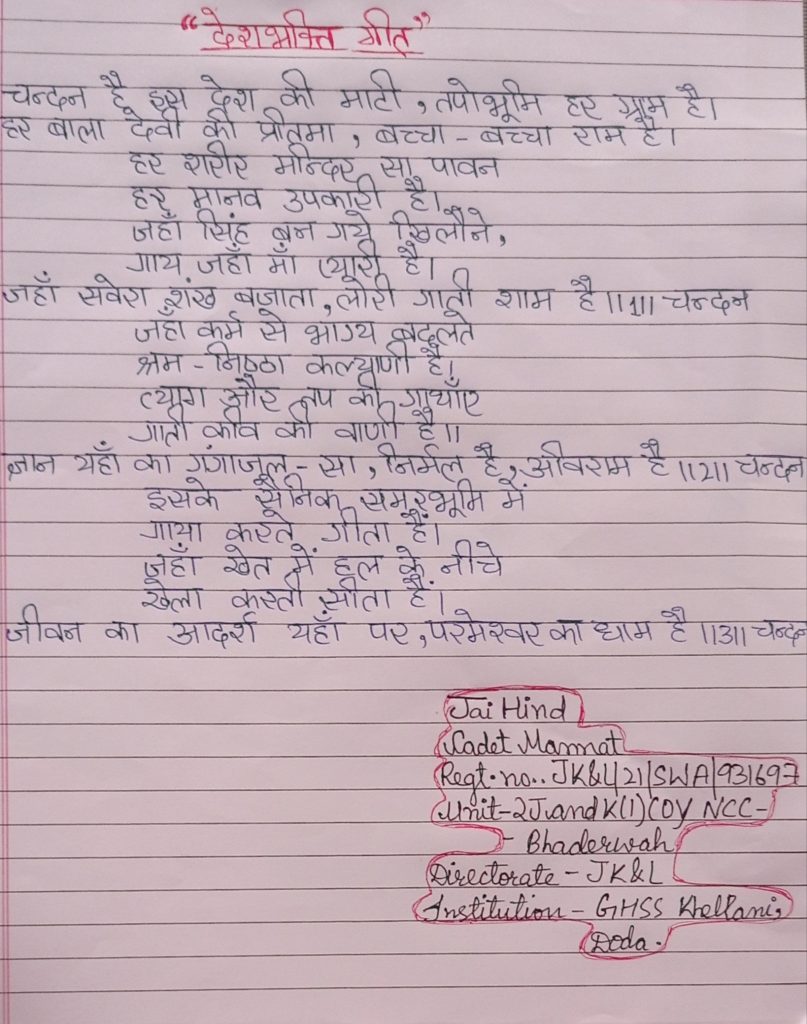 “देशभक्ति गीत”
चन्दन है इस देश की माटी, तपोभूमि हर ग्राम है।
हर बाला देवी की प्रतिमा, बच्चा - बच्चा राम है।
हर शरीर मन्दिर सा पावन
हर मानव उपकारी है।
जहाँ सिंह बन गये खिलौने,
गाय जहाँ माँ प्यारी है।
जहाँ सवेरा शंख बजाता, लोरी गाती शाम है ।।1।। चन्दन
जहाँ कर्म से भाग्य बदलते
श्रम - निष्ठा कल्याणी है।
त्याग और तप की गाथाँए
गाती कवि की वाणी है।।
ज्ञान यहाँ का गंगाजल - सा, निर्मल है, अविराम है ।।2।। चन्दन
इसके सैनिक समरभूमि में
गाया करते गीता हैं।
जहाँ खेत में हल के नीचे
खेला करती सीता हैं।
जीवन का आदर्श यहाँ पर, परमेश्वर का धाम है ।।3।। चन्दन
Jai Hind
Cadet Mannat
Regt. no.. JK&L/21/SWA/931697
Unit-2 J and K(I) COY NCC-
- Bhaderwah
Directorate - JK&L
Institution - GHSS Khellani,
Doda.